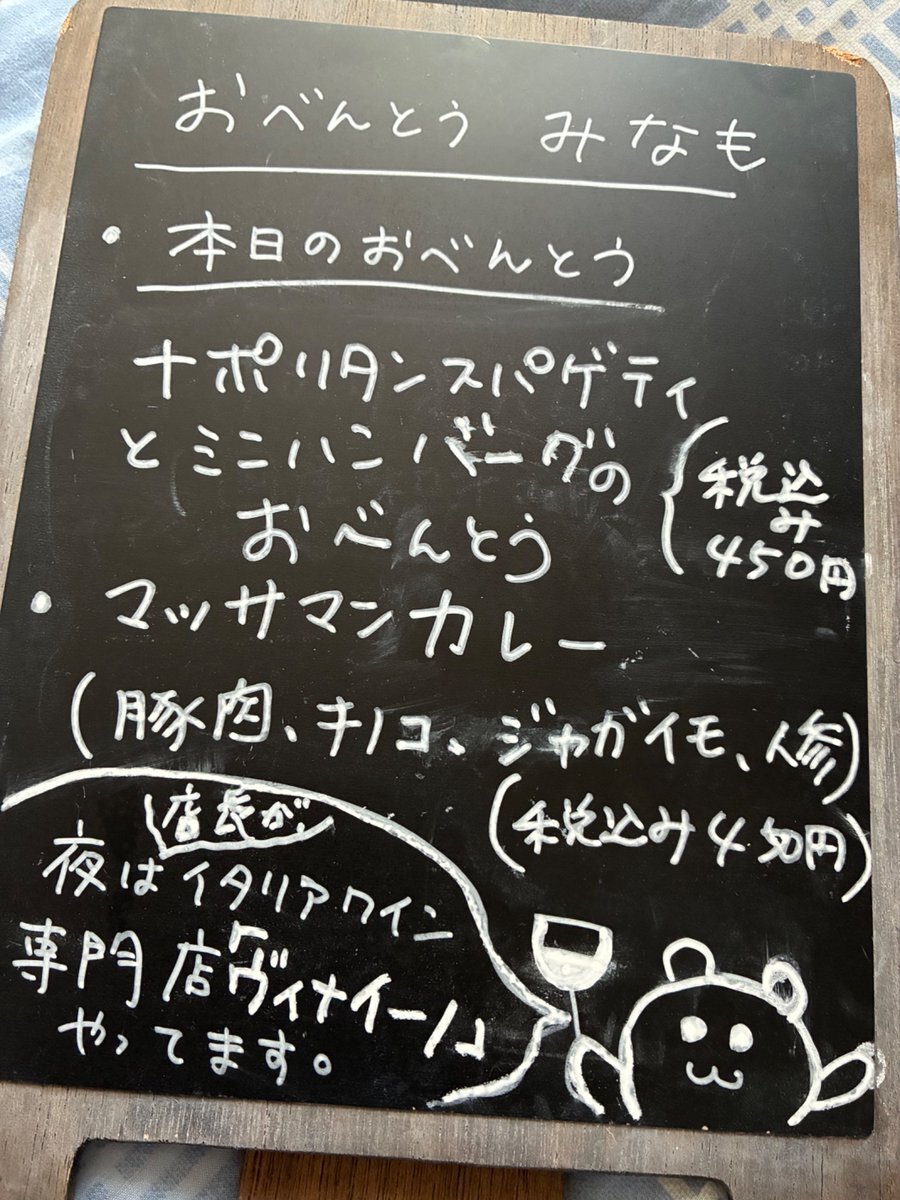 おべんとう みなも
・本日のおべんとう
ナポリタンスパゲティ
とミニハンバーグの
おべんとう
税込み
450円
・マッサマンカレー
(豚肉、キノコ、ジャガイモ、人参)
(税込み450円)
店長が、
夜はイタリアワイン
専門店「ヴィナイーノ」
やってます。